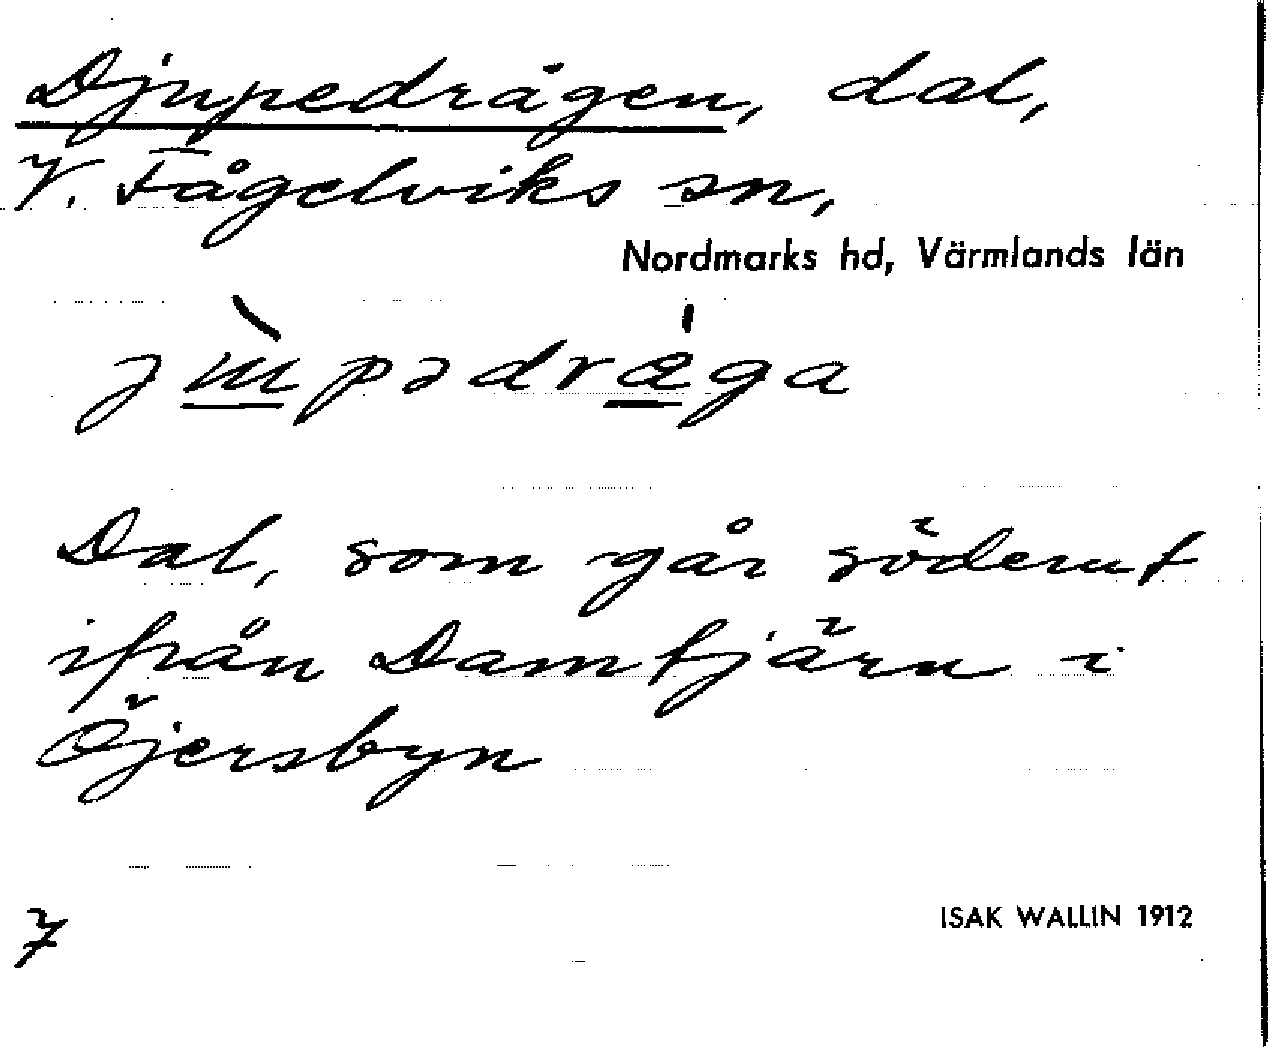 Djupedrågen, dal,
V. Fågelviks sn,
Nordmarks hd, Värmlands län
Dal, som går söderut
ifrån Damtjärn i
Öjersbyn
7
ISAK WALLIN 1912